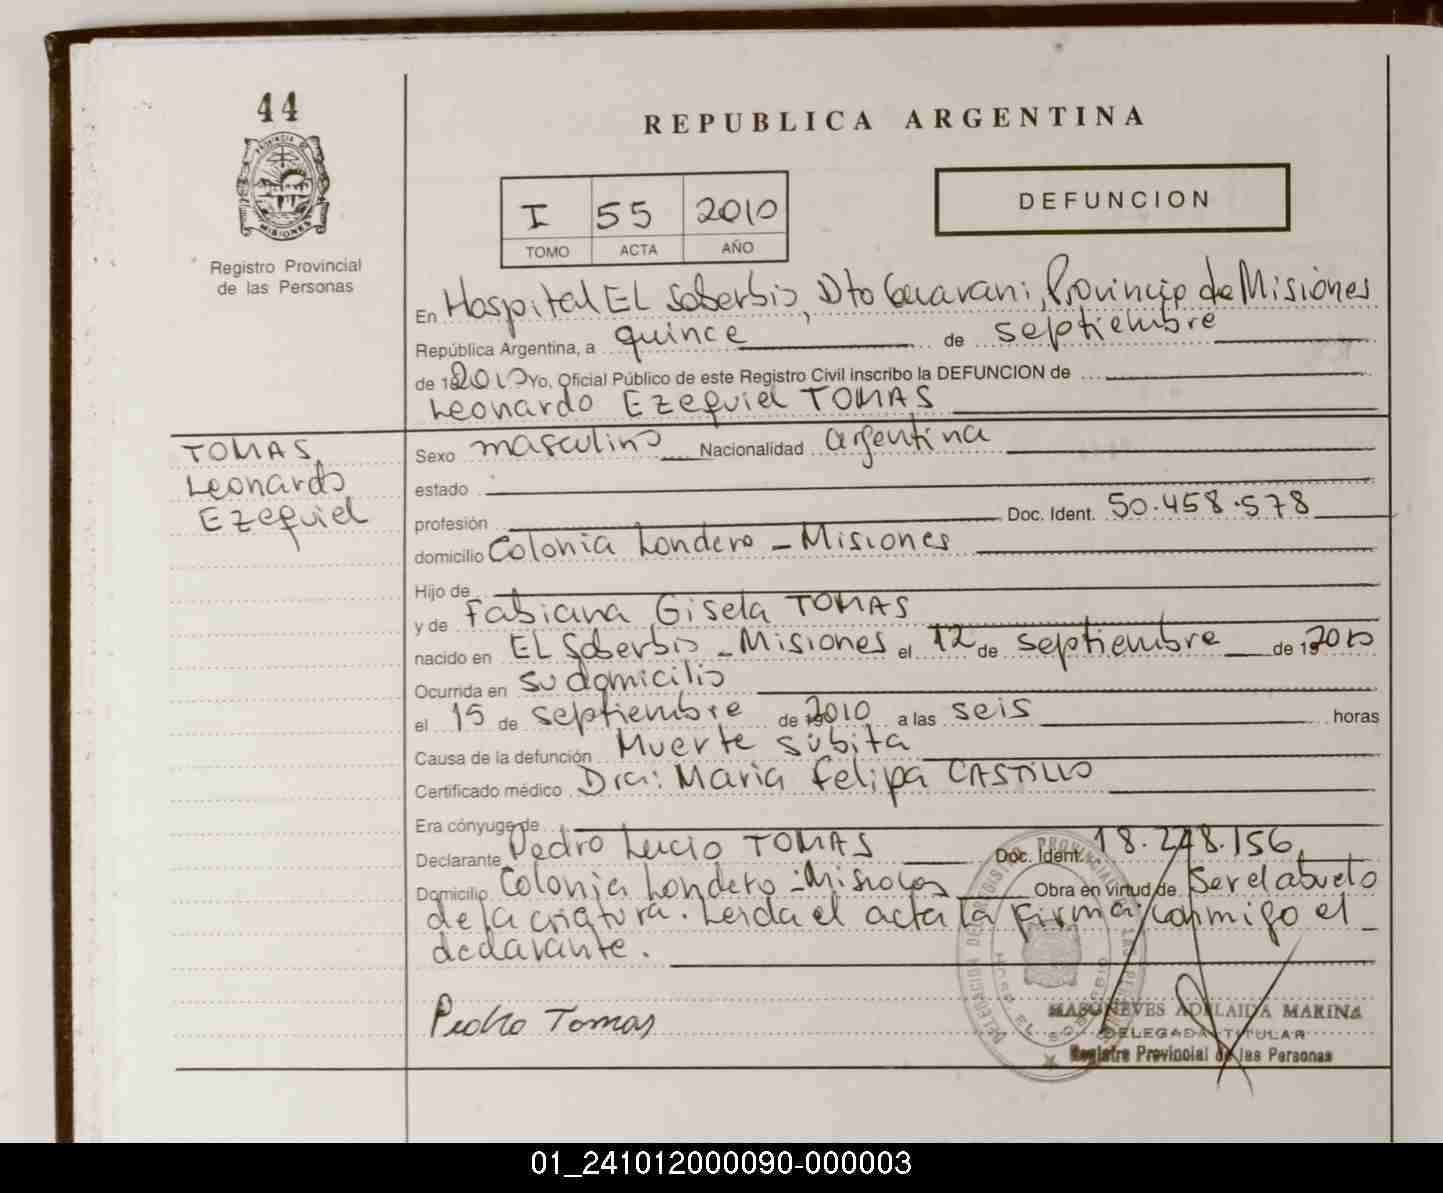 44
REPUBLICA ARGENTINA
PROVINCIA DE
MISIONES
Registro Provincial
de las Personas
I 55 2010
TOMO ACTA AÑO
DEFUNCION
En Hospital EL Soberbio, Dto Guarani, Provincia de Misiones
República Argentina, a quince de septiembre
de 2010 Yo, Oficial Público de este Registro Civil inscribo la DEFUNCION de
Leonardo Ezequiel TOMAS
TOMAS
Leonardo
Ezequiel
Sexo masculino Nacionalidad argentina
estado
profesión Doc. Ident. 50.458.578
domicilio Colonia Londero - Misiones
Hijo de
y de Fabiana Gisela TOMAS
nacido en EL Soberbio - Misiones el 12 de septiembre de 2010
Ocurrida en su domicilio
el 15 de septiembre de 2010 a las seis horas
Causa de la defunción Muerte súbita
Certificado médico Dra: Maria Felipa CASTILLO
Era cónyuge de
Declarante Pedro Lucio TOMAS Doc. Ident. 18.248.156
Domicilio Colonia Londero - Misiones Obra en virtud de Ser el abuelo
de la criatura. Leida el acta la firma conmigo el
declarante.
Pedro Tomas
MASONEVES ADELAIDA MARINA
DELEGADA TITULAR
Registro Provincial de las Personas
01_241012000090-000003